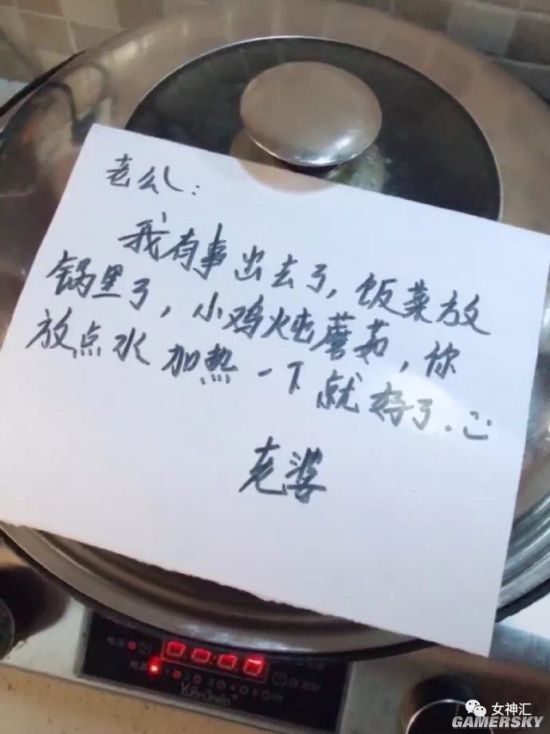 老公:
我有事出去了,饭菜放
锅里了,小鸡炖蘑菇,你
放点水加热一下就好了.
老婆
00:00
女神汇
GAMERSKY